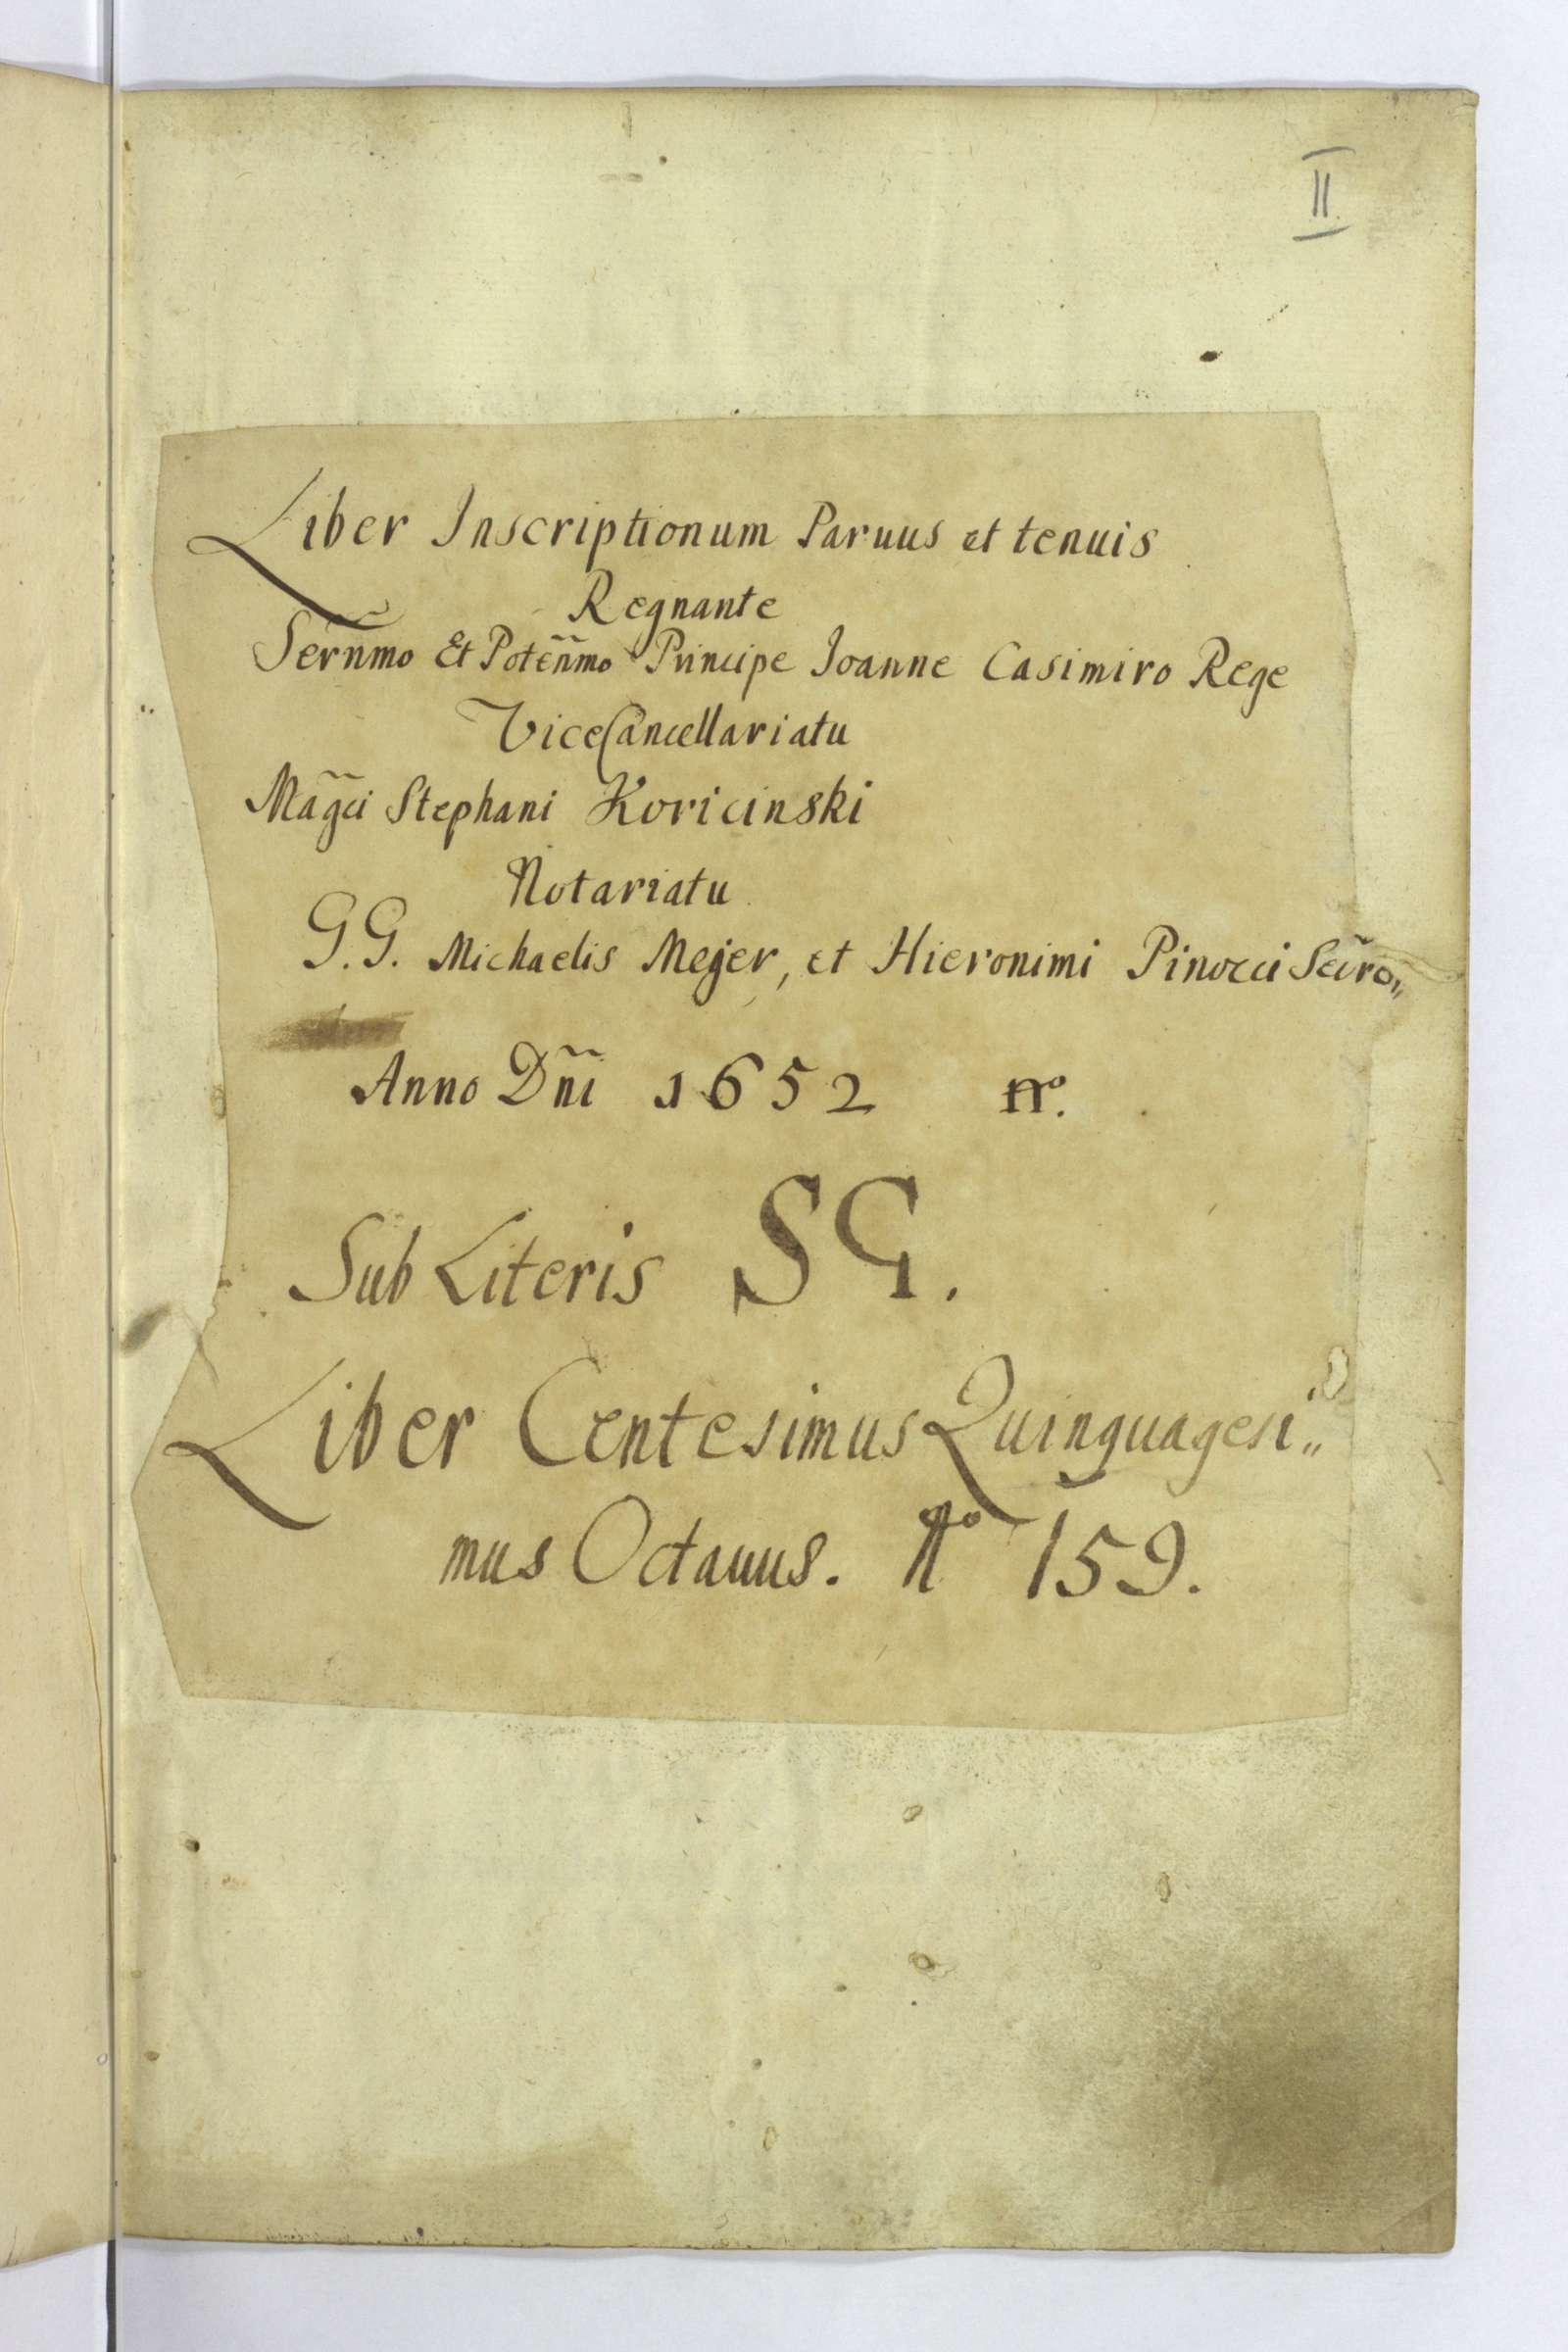 II
Liber Inscriptionum Paruus et tenuis
Regnante
Serñmo Et Poteñmo Principe Joanne Casimiro Rege
ViceCancellariatu
Mag̃ci Stephani Koricinski
Notariatu
G.G. Michaelis Mejer, et Hieronimi Pinocci Secro„
Anno Dñi 1652 nº.
Sub Literis SG.
Liber Centesimus Quinquagesi„
mus Octauus. Nº 159.